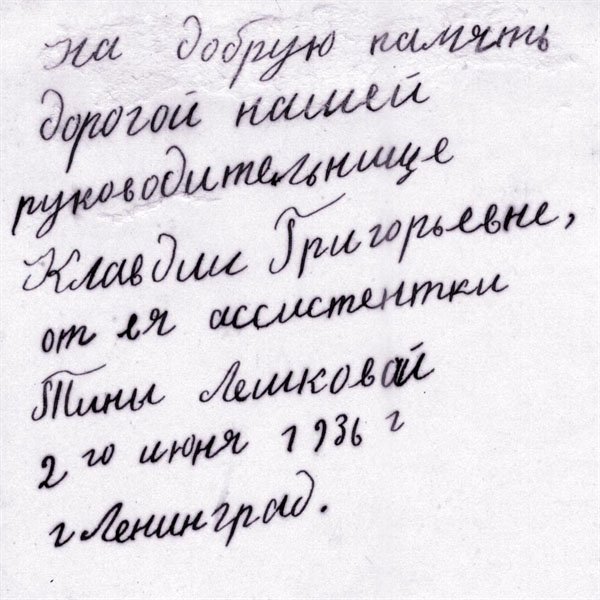 на добрую память
дорогой нашей
руководительнице
Клавдии Григорьевне,
от ея ассистентки
Тины Лешковой
2го июня 1936 г
г Ленинград.